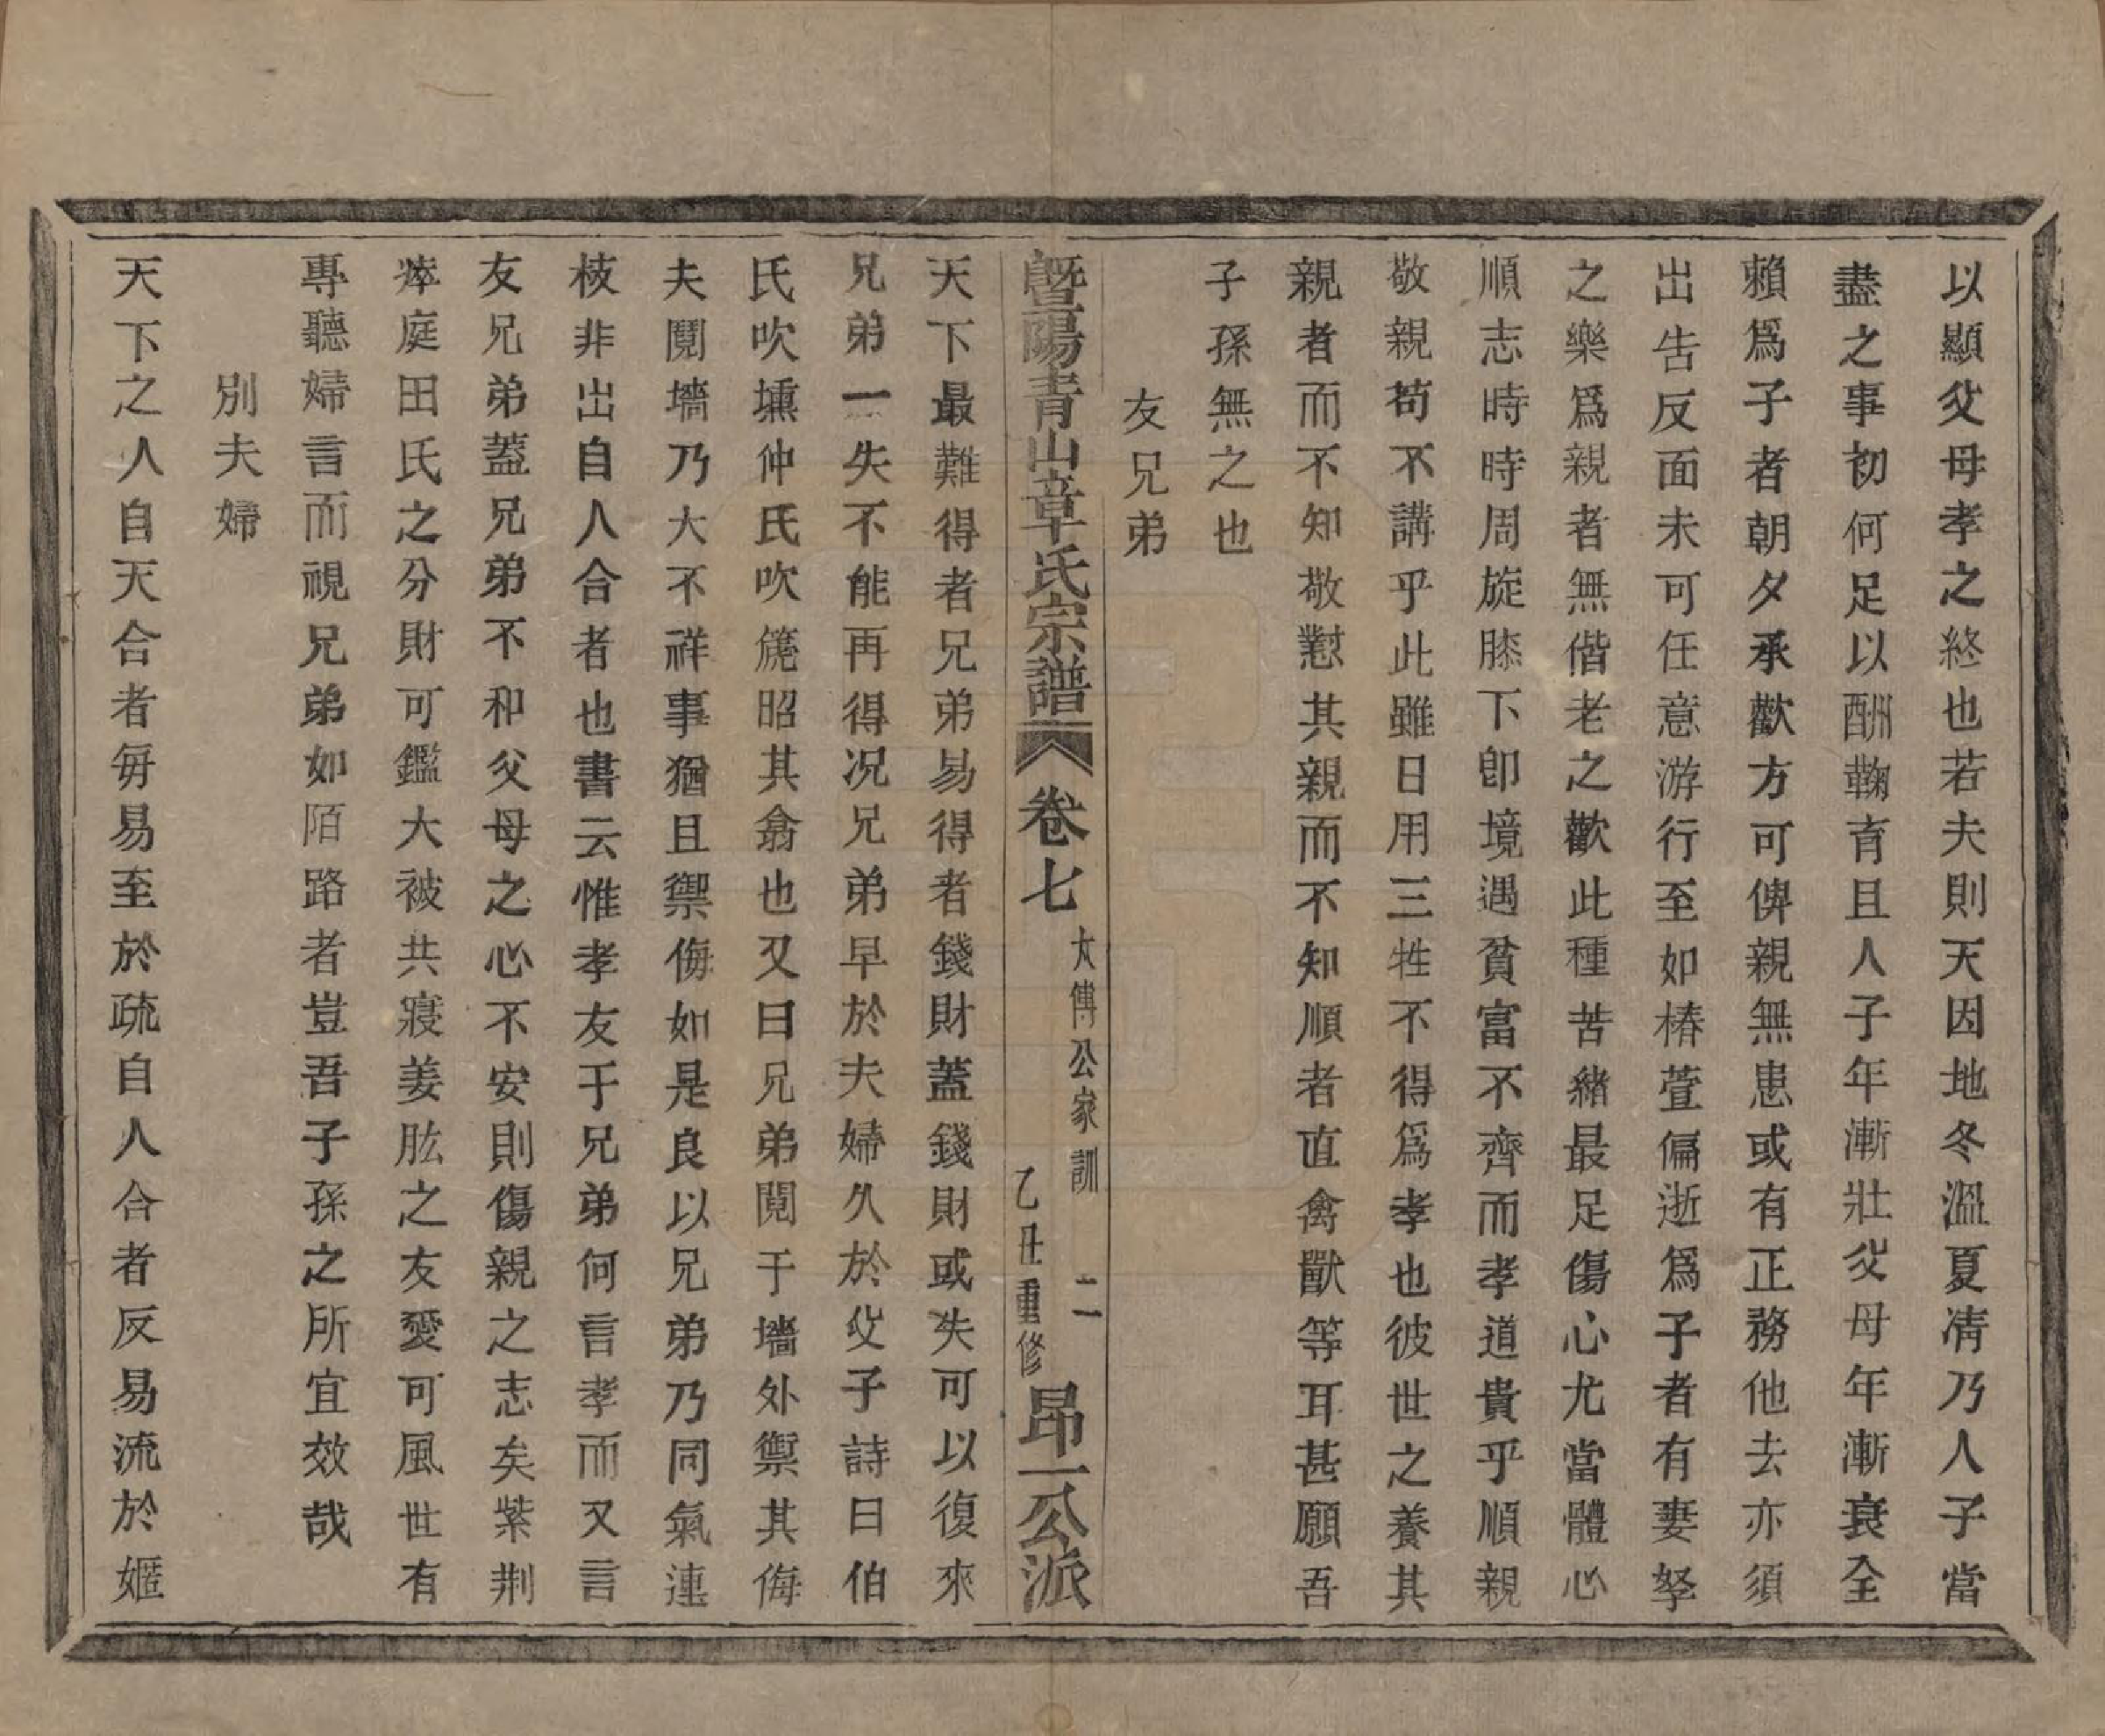 以顯父母孝之終也若夫則天因地冬溫夏凊乃人子當
盡之事初何足以酬鞠育且人子年漸壯父母年漸衰全
賴爲子者朝夕承歡方可俾親無患或有正務他去亦須
出告反面未可任意游行至如椿萱偏逝爲子者有妻孥
之樂爲親者無偕老之歡此種苦緒最足傷心尤當體心
順志時時周旋膝下卽境遇貧富不齊而孝道貴乎順親
敬親苟不講乎此雖日用三牲不得爲孝也彼世之養其
親者而不知敬懟其親而不知順者直禽獸等耳甚願吾
子孫無之也
友兄弟
暨陽青山章氏宗譜
卷七
太傅公家訓 二
乙丑重修
昂一公派
天下最難得者兄弟易得者錢財蓋錢財或失可以復來
兄弟一失不能再得况兄弟早於夫婦久於父子詩曰伯
氏吹壎仲氏吹篪昭其翕也又曰兄弟鬩于墻外禦其侮
夫鬩墻乃大不祥事猶且禦侮如是良以兄弟乃同氣連
枝非出自人合者也書云惟孝友于兄弟何言孝而又言
友兄弟蓋兄弟不和父母之心不安則傷親之志矣紫荆
瘁庭田氏之分財可鑑大被共寢姜肱之友愛可風世有
專聽婦言而視兄弟如陌路者豈吾子孫之所宜效哉
別夫婦
天下之人自天合者每易至於疏自人合者反易流於嫟